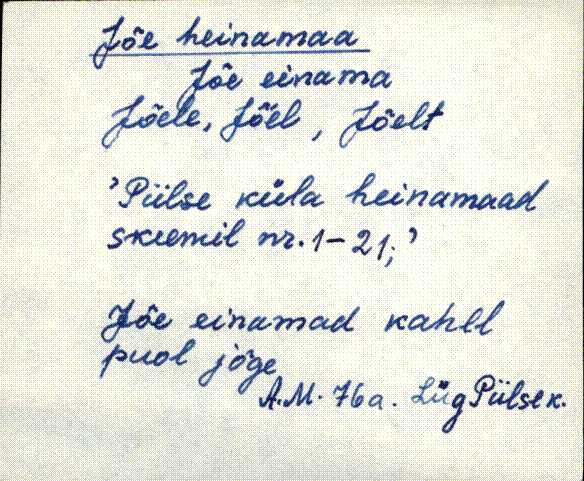 Jõe heinamaa
Jõe einama
Jõele, Jõel, Jõelt
'Püilse küla heinamaad
skeemil nr. 1–21;'
Jõe einamad kahel
puol jõge
A.M. 76a. Lüg Püilse k.